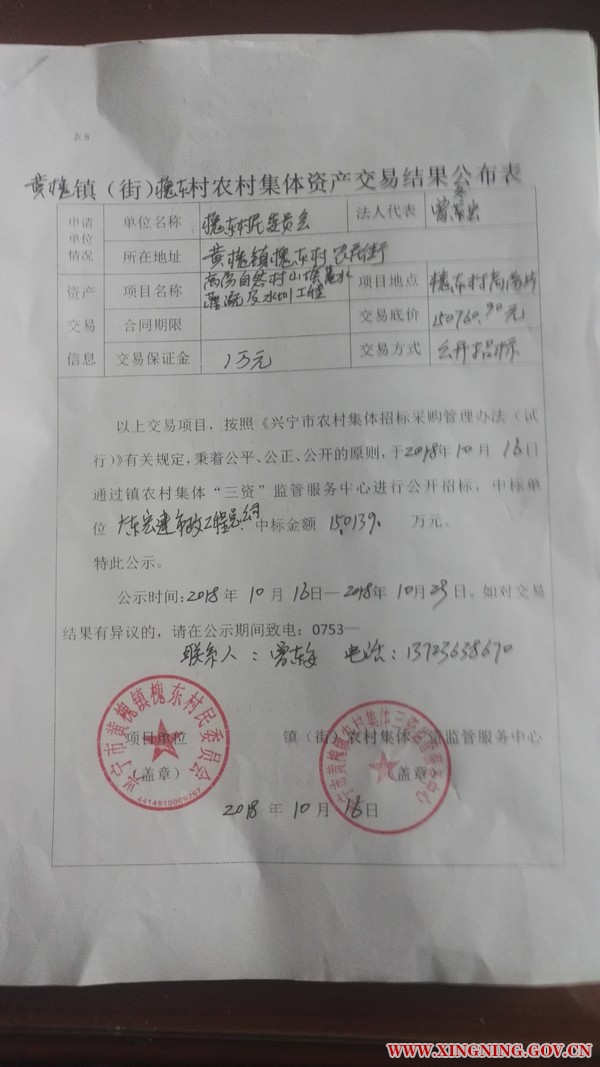 表8
黄槐镇（街）槐东村农村集体资产交易结果公布表
申请单位情况 单位名称 槐东村民委员会 法人代表
所在地址 黄槐镇槐东村
资产交易信息 项目名称 自然村山塘 水灌溉及水圳工程 项目地点 槐东村
合同期限 交易底价 150760.90元
交易保证金 1万元 交易方式 公开招标
以上交易项目，按照《兴宁市农村集体招标采购管理办法（试
行）》有关规定，秉着公平、公正、公开的原则，于2018年10月16日
通过镇农村集体“三资”监管服务中心进行公开招标，中标单
位 广东宏建市政工程 ，中标金额 万元。
特此公示。
公示时间：2018年10月16日—2018年10月23日。如对交易
结果有异议的，请在公示期间致电：0753—
联系人： 电话：13723638670
项目单位 镇（街）农村集体三资监管服务中心
（盖章） （盖章）
兴宁市黄槐镇槐东村民委员会
4414810000267
2018年10月16日
WWW.XINGNING.GOV.CN